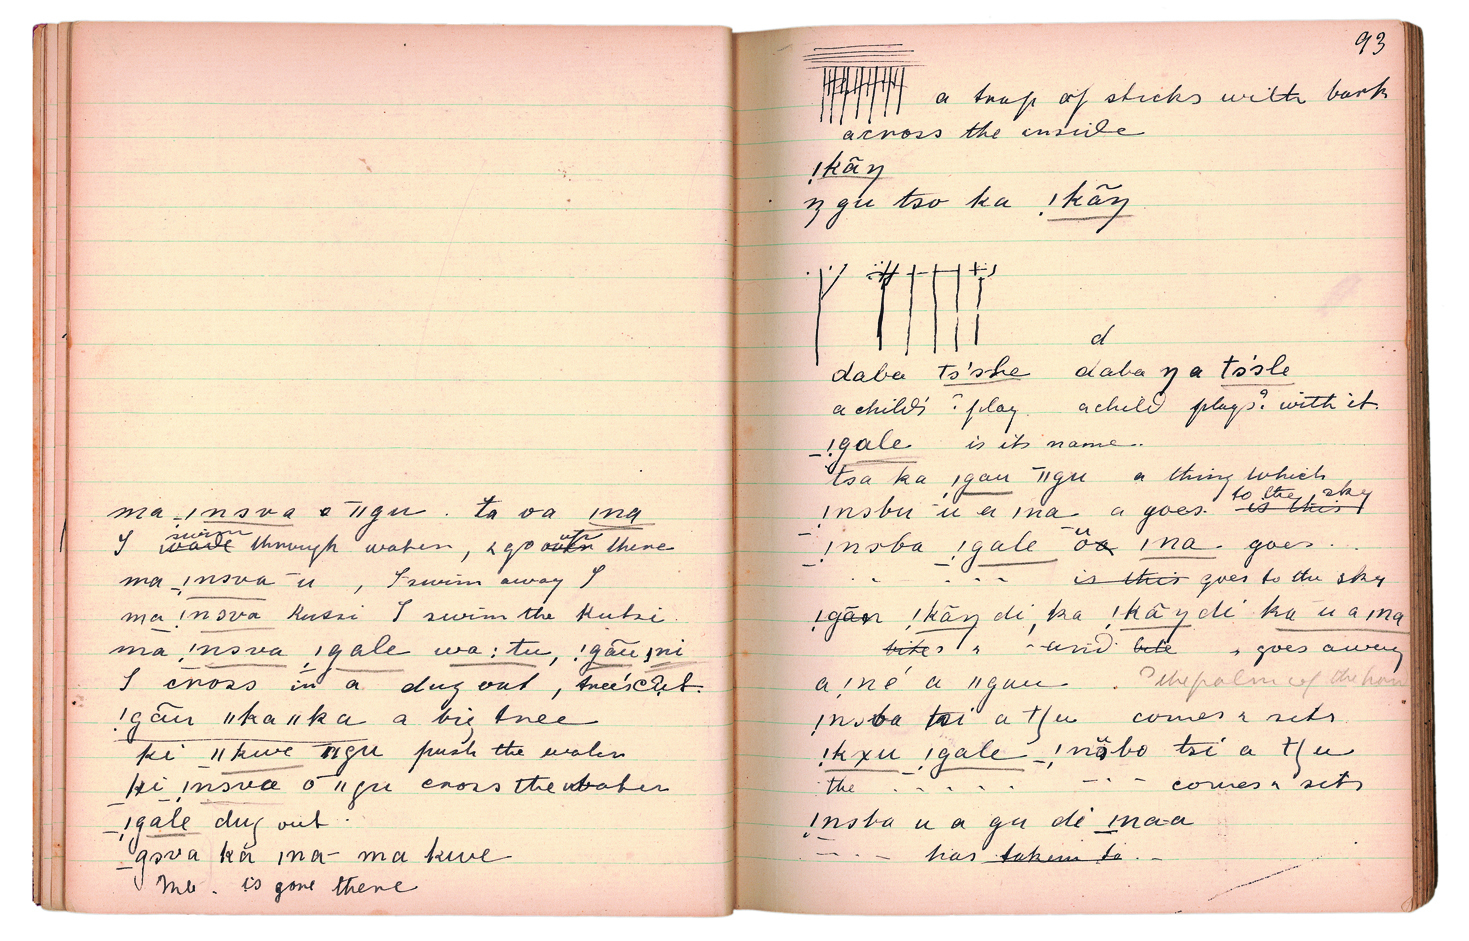 ma ǃnsva o ǁgu . ta va ǀna
I swim wade through water, & go over there
ma ǃnsva u , I swim away I
ma ǃnsva kussi I swim the kutsi.
ma ǃnsva ǃgale wa:tu, ǃgãu ǀni
I cross in a dug out, tree's
ǃgãu ǁkaǁka a big tree
ki ǁkwe ǁgu push the water
ki ǃnsva o ǁgu cross the water
ǃgale dug out.
gsva kã ǀna ma kwe
is gone there
93
a trap of sticks with bark
across the inside
ǃkãŋ
ŋ gu tso ka ǃkãŋ
d
daba ts'she daba ŋ a ts'sle
a child's ? play. a child plays? with it.
ǃgale is its name.
tsa ka ǃgau ǁgu a thing which
to the sky
ǃnsbu u a ǀna a goes is this
ǃnsba ǃgale ǀna . goes..
is this goes to the sky
ǃkãŋ di ka ǃkãŋ di ka u a ǀna
bites " - and bite " goes away
a ǀné a ǁgau . ? the palm of the
ǃnsba tsi a tʃu comes & sits
ǃkxu ǃgale ǃnsbo tsi a tʃu
the . . . . . comes & sits
ǃnsba u a gu di ǀnaa
has taken to . -